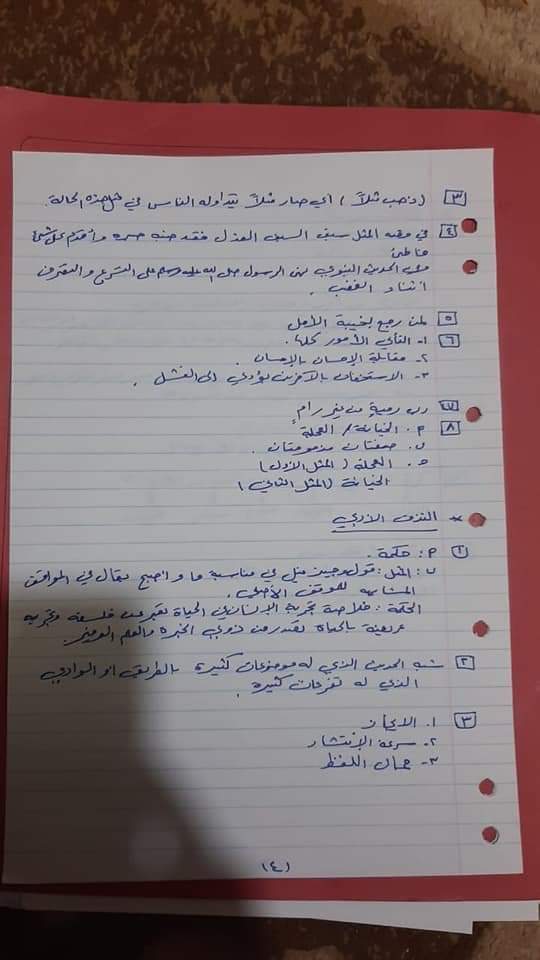 ٣ (ذهب مثلاً) أي صار مثلاً يتداوله الناس في مثل هذه الحالة.
٤ في قصة المثل سبق السيف العذل فقد ضبه صبره وأقدم على شيء
خاطئ
وفي الحديث النبوي نهى الرسول صلى الله عليه وسلم على التسرع والتصرف
أثناء الغضب.
٥ لمن رجع بخيبة الأمل
٦ ١- التأني الأمور كلها.
٢- مقابلة الإحسان بالإحسان.
٣- الاستخفاف بالآخرين يؤدي إلى الفشل.
٧ رب رمية من غير رامٍ
٨ أ. الخيانة / العجلة
ب. صفتان مذمومتان.
ج. العجلة (المثل الأول)
الخيانة (المثل الثاني)
* التذوق الأدبي
١ أ: حكمة.
ب: المثل: قول وجيز قيل في مناسبة ما وأصبح يقال في المواقف
المشابهه للموقف الأصلي.
الحكمة: خلاصة تجربة الإنسان في الحياة تعبر عن فلسفة وتجربه
عريضة بالحياة تصدر من ذوي الخبره والعلم الوفير.
٢ شبه الحديث الذي له موضوعات كثيره بالطريق او الوادي
الذي له تفرعات كثيره.
٣ ١. الايجاز
٢- سرعة الإنتشار
٣- جمال اللفظ
(٤)